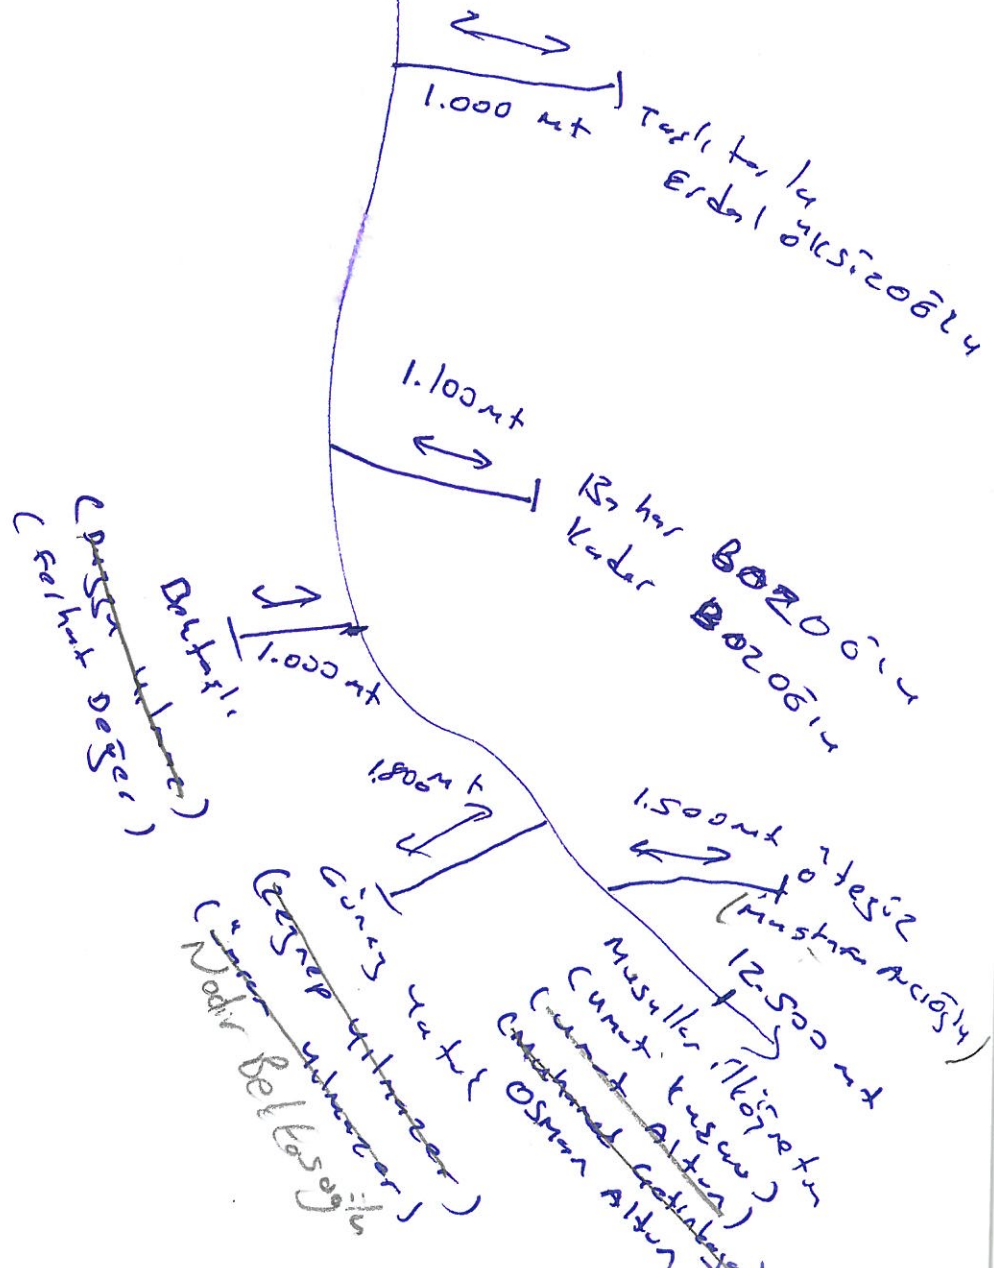 1.000 mt
Taşlıtarla
Erdal ÖKSÜZOĞLU
1.100 mt
Bahar BOZOĞLU
Kader BOZOĞLU
1.000 mt
Bektaşlı
(Duygu Yılmaz)
(Ferhat Doğer)
1.800 mt
Günay yatık
(Zeynep Yılmazer)
(Ümmer Yılmazer)
Nadir
1.500 mt
Ötegüz
(Mustafa AVCIOĞLU)
12.500 mt
Musullar ilköğretim
(Umut Kuşcu)
(Umut Altun)
(Muhamed
OSMAN Altun